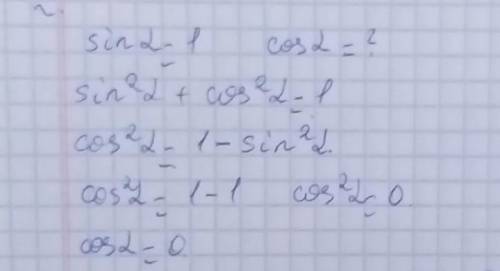 sinα = 1 cosα = ?
sin²α + cos²α = 1
cos²α = 1 - sin²α.
cos²α = 1 - 1 cos²α = 0.
cosα = 0.